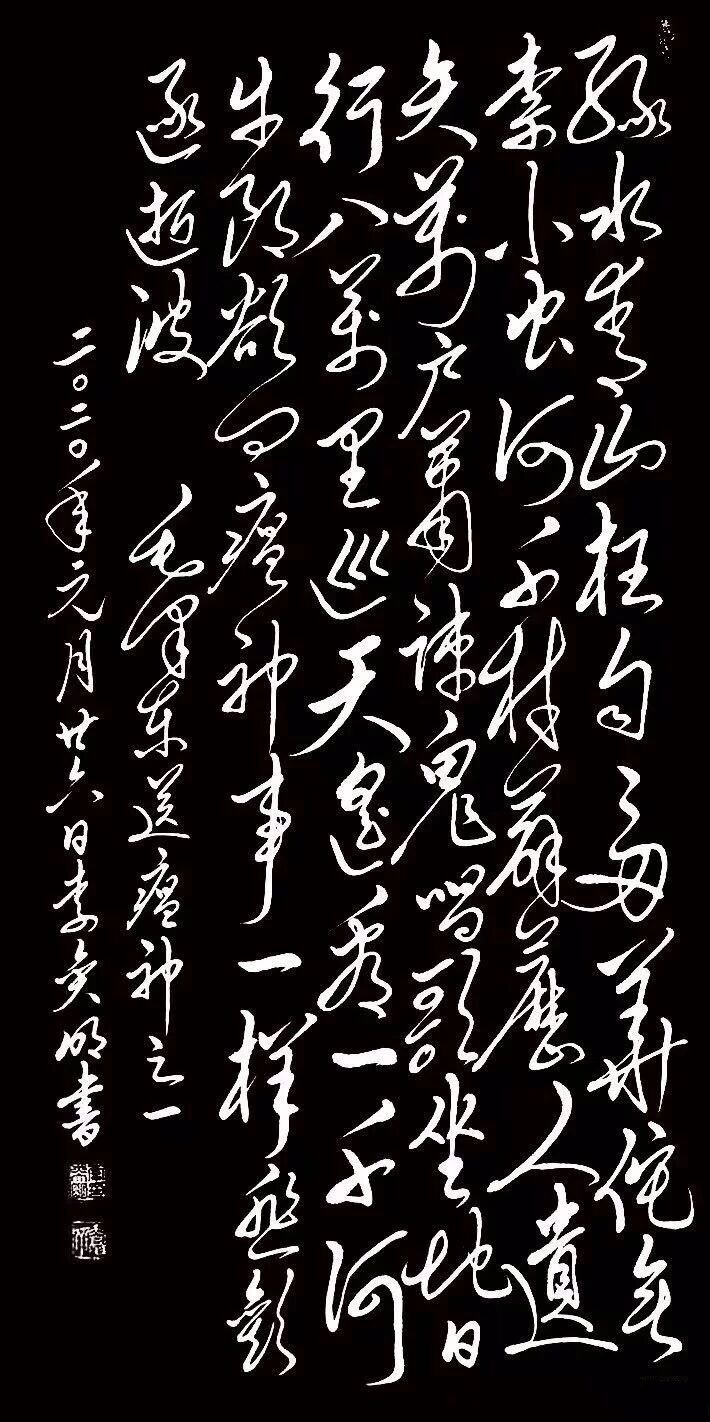 緑水青山枉自多華佗無
奈小虫何千村薜藶人遺
矢萬户蕭疎鬼唱歌坐地日
行八萬里巡天遥看一千河
牛郎欲問瘟神事一样悲歡
逐逝波
毛澤東送瘟神之一
二〇二〇年元月廿六日李奂明書